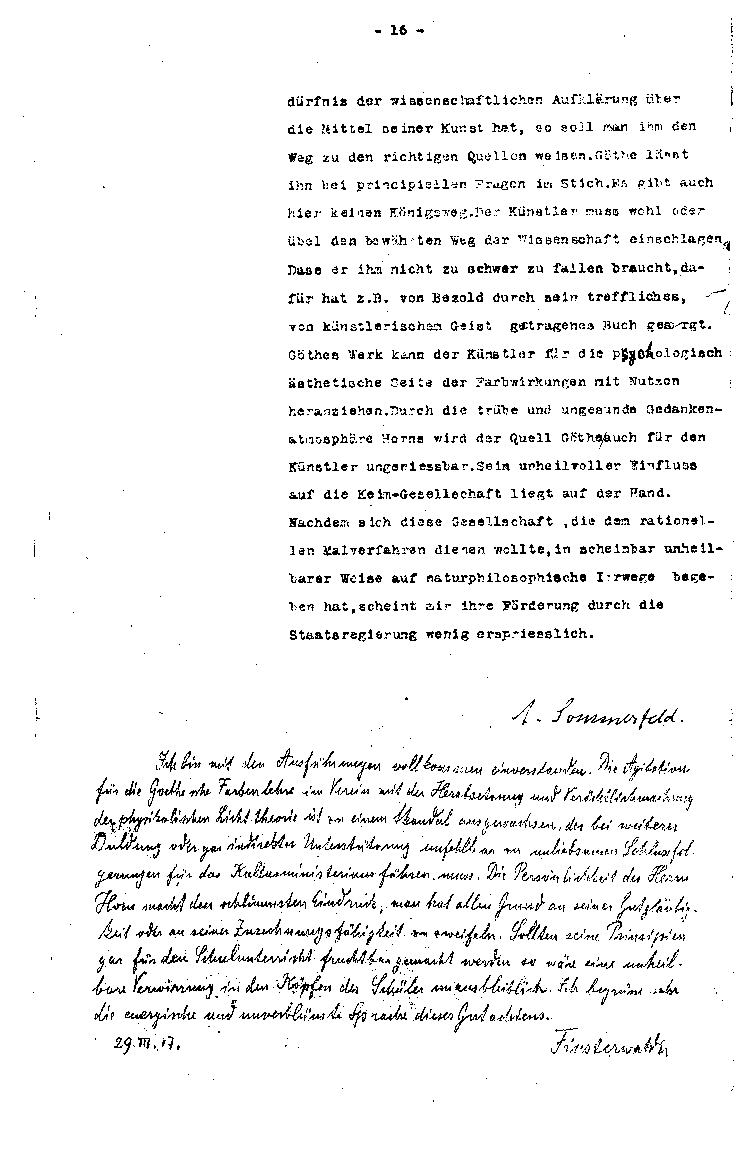 - 16 -
dürfnis der wissenschaftlichen Aufklärung über
die Mittel seiner Kunst hat, so soll man ihm den
Weg zu den richtigen Quellen weisen.Göthe lässt
ihn bei principiellen Fragen im Stich.Es gibt auch
hier keinen Königsweg.Der Künstler muss wohl oder
übel den bewährten Weg der Wissenschaft einschlagen.
Dass er ihm nicht zu schwer zu fallen braucht,da-
für hat z.B. von Bezold durch sein treffliches,
von künstlerischem Geist getragenes Buch gesorgt.
Göthes Werk kann der Künstler für die psychologisch
ästhetische Seite der Farbwirkungen mit Nutzen
heranziehen.Durch die trübe und ungesunde Gedanken-
atmosphäre Horns wird der Quell Göthe auch für den
Künstler ungeniessbar.Sein unheilvoller Einfluss
auf die Keim-Gesellschaft liegt auf der Hand.
Nachdem sich diese Gesellschaft ,die dem rationel-
len Malverfahren dienen wollte,in scheinbar unheil-
barer Weise auf naturphilosophische Irrwege bege-
ben hat,scheint mir ihre Förderung durch die
Staatsregierung wenig erspriesslich.
A. Sommerfeld.
Ich bin mit den Ausführungen vollkommen einverstanden. Die Agitation
für die Goethesche Farbenlehre im Verein mit der Herabsetzung und Verächtlichmachung
der physikalischen Lichttheorie ist zu einem Skandal ausgewachsen, der bei weiterer
Duldung oder gar indirekter Unterstützung unfehlbar zu unliebsamen Schlussfol-
gerungen für das Kultusministerium führen muss. Die Persönlichkeit des Herrn
Horn macht den schlimmsten Eindruck, man hat allen Grund an seiner Gutgläubig-
keit oder an seiner Zurechnungsfähigkeit zu zweifeln. Sollten seine Prinzipien
gar für den Schulunterricht fruchtbar gemacht werden so wäre eine unheil-
bare Verwirrung in den Köpfen der Schüler unausbleiblich. Ich begrüsse sehr
die energische und unverblümte Sprache dieses Gutachtens.
29.III.17. Finsterwalder